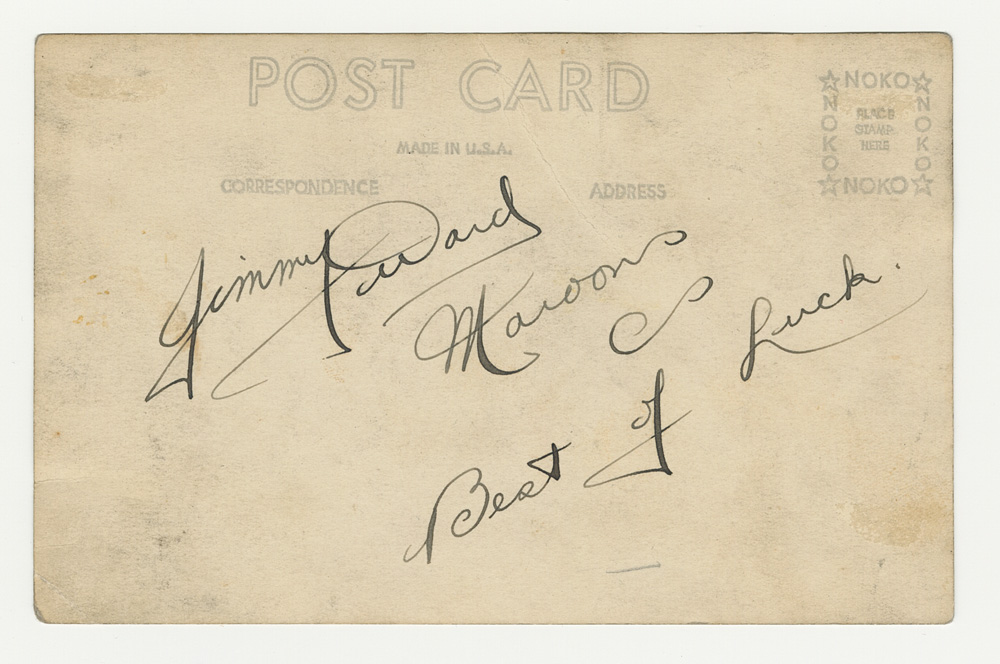 POST CARD
MADE IN U.S.A.
CORRESPONDENCE
ADDRESS
NOKO
NOKO
NOKO
NOKO
PLACE
STAMP
HERE
Jimmy Ward
Maroons
Best of Luck.